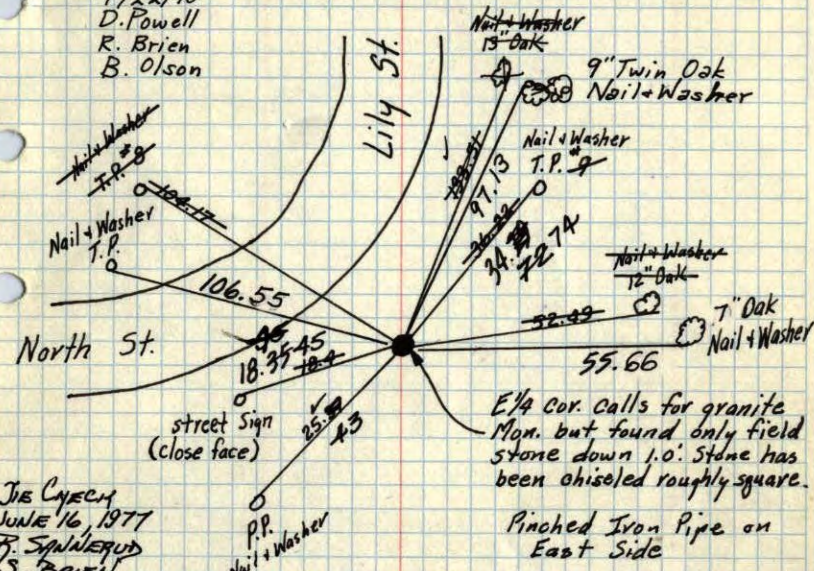 D. Powell
R. Brien
B. Olson
Lily St.
Nail & Washer
13" Oak
9" Twin Oak
Nail & Washer
Nail & Washer
T.P. # 8
104.17
Nail & Washer
T.P.
106.55
97.13
Nail & Washer
T.P. # 9
34.
72.74
Nail & Washer
12" Oak
52.49
7" Oak
Nail & Washer
55.66
North St.
45
18.35 45
18.4
street Sign
(close face)
25.
43
P.P.
Nail & Washer
E 1/4 cor. calls for granite
Mon. but found only field
stone down 1.0'. Stone has
been chiseled roughly square.
Pinched Iron Pipe on
East Side
TIE CHECK
JUNE 16, 1977
R. SANNERUD
S. BRIEN